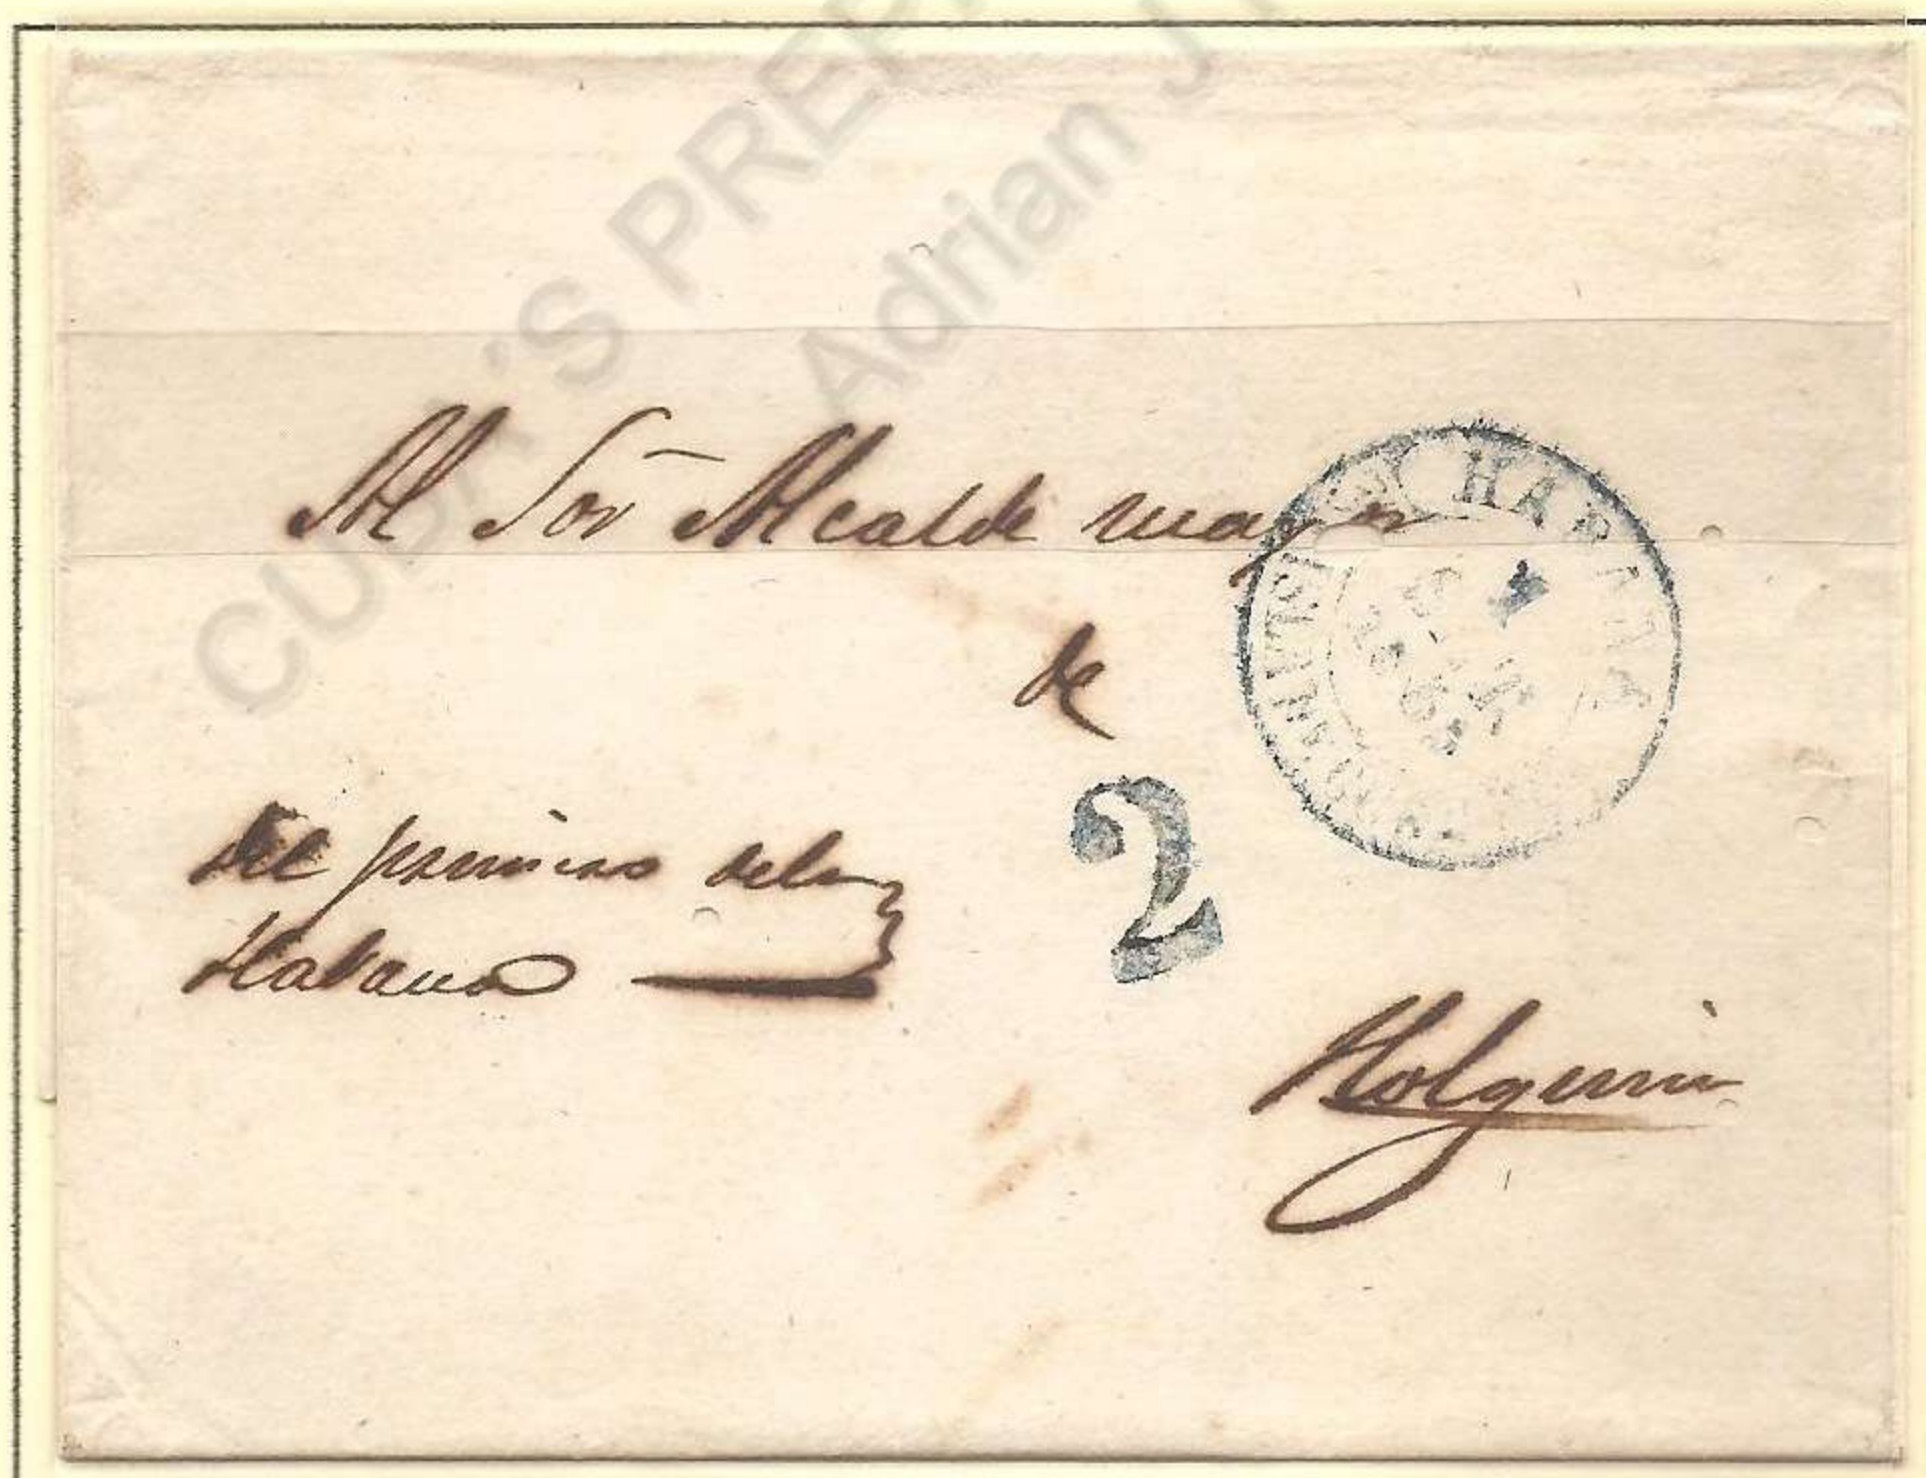 CUBA'S PREF
Adrian J
Al Sor Alcalde mayor
HABANA
4
de
2
del primero dela
Habana
Holguin